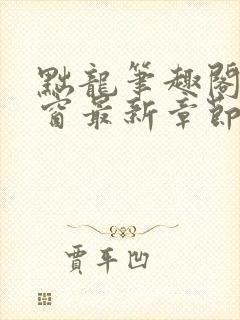 點龍筆趣閣
窗最新章節
賈平凹